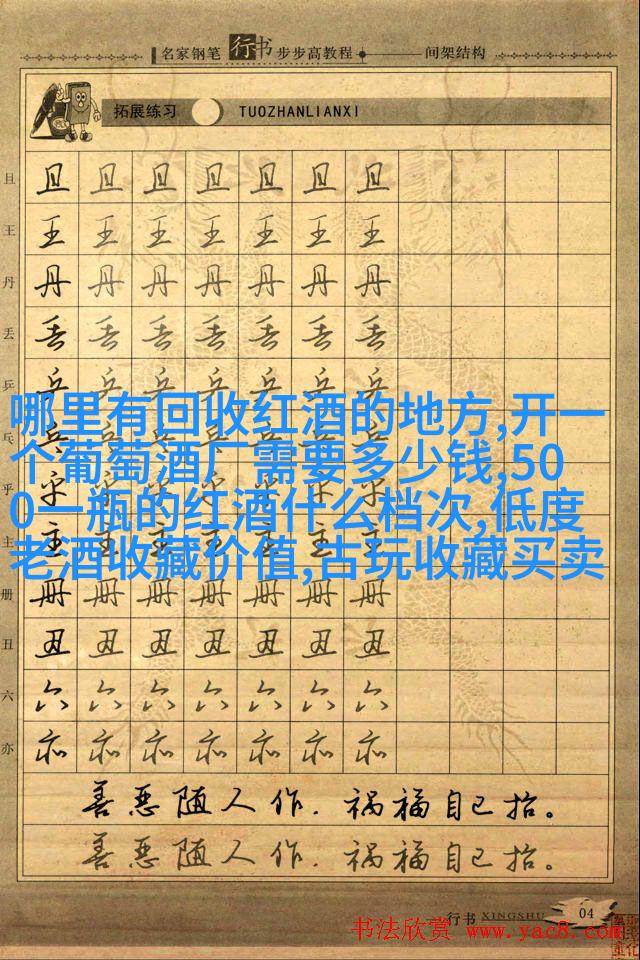 名家钢笔行书步步高教程 间架结构
拓展练习 TUOZHANLIANXI
且 且 且 且 且 且 且 且
王 王 王 王 王 王 王 王
丹 丹 丹 丹 丹 丹 丹 丹
丢 丢 丢 丢 丢 丢 丢 丢
乒 乒 乒 乒 乒 乒 乒 乒
哪里有回收红酒的地方,开一
乓 乓 乓 乓 乓 乓 乓 乓
个葡萄酒厂需要多少钱,50
乎 乎 乎 乎 乎 乎 乎 乎
0一瓶的红酒什么档次,低度
主 主 主 主 主 主 主 主
老酒收藏价值,古玩收藏买卖
册 册 册 册 册 册 册 册
丑 丑 丑 丑 丑 丑 丑 丑
六 六 六 六 六 六 六 六
亦 亦 亦 亦 亦 亦 亦 亦
善恶随人作.祸福自己招。
善恶随人作.祸福自己招。
行书 XINGSHU 04
书法欣赏 www.yac8.com